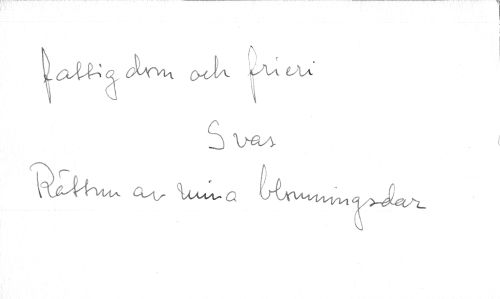 fattigdom och frieri
Svar
Rätten av mina blomningsdar